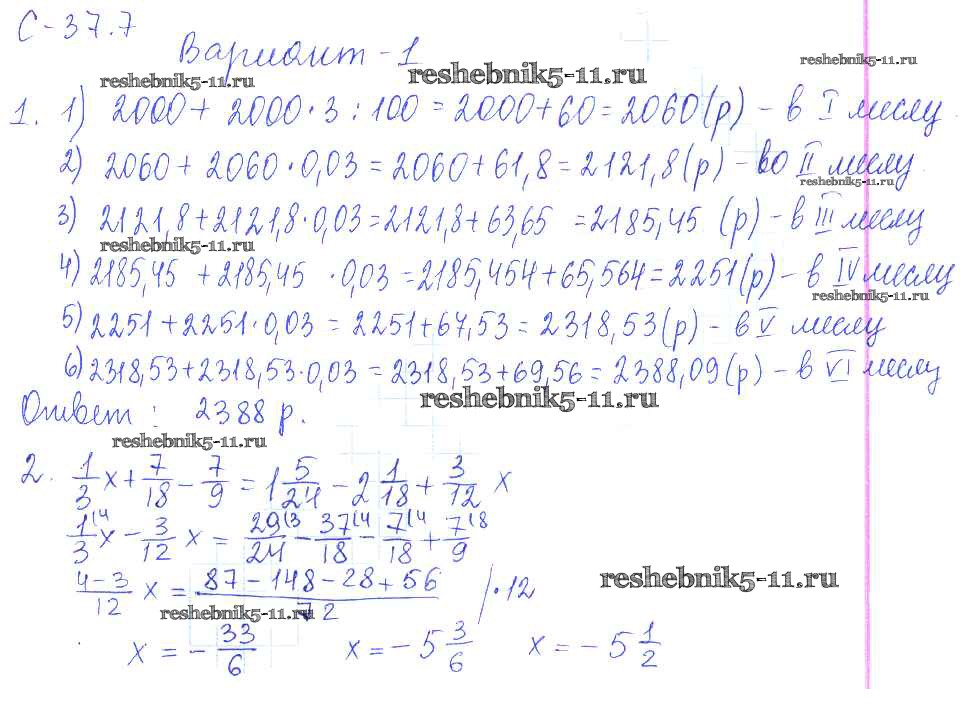 С-37.7
Вариант-1
reshebnik5-11.ru reshebnik5-11.ru reshebnik5-11.ru
1. 1) 2000 + 2000·3:100 = 2000+60 = 2060(р) - в I месяц
2) 2060 + 2060·0,03 = 2060 + 61,8 = 2121,8(р) - во II месяц
reshebnik5-11.ru
3) 2121,8+2121,8·0,03=2121,8+63,65 =2185,45 (р) - в III месяц
reshebnik5-11.ru
4) 2185,45 + 2185,45 ·0,03 =2185,454+65,564=2251(р) - в IV месяц
reshebnik5-11.ru
5) 2251+2251·0,03 = 2251+67,53 = 2318,53(р) - в V месяц
6) 2318,53+2318,53·0,03 = 2318,53+69,56 = 2388,09(р) - в VI месяц
Ответ: 2388 р.
reshebnik5-11.ru
reshebnik5-11.ru
2. 1/3 x + 7/18 - 7/9 = 1 5/24 - 2 1/18 + 3/12 x
1/3(4 x - 3/12 x = 29/24(3 - 37/18(4 - 7/18(4 + 7/9(8
(4-3)/12 x = (87-148-28+56)/72 /·12
reshebnik5-11.ru
reshebnik5-11.ru
x = - 33/6 x = - 5 3/6 x = - 5 1/2